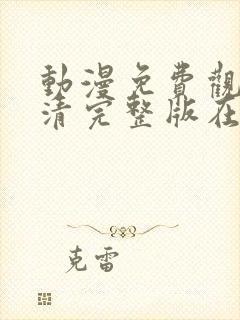 動漫免費觀
清完整版在
克雷